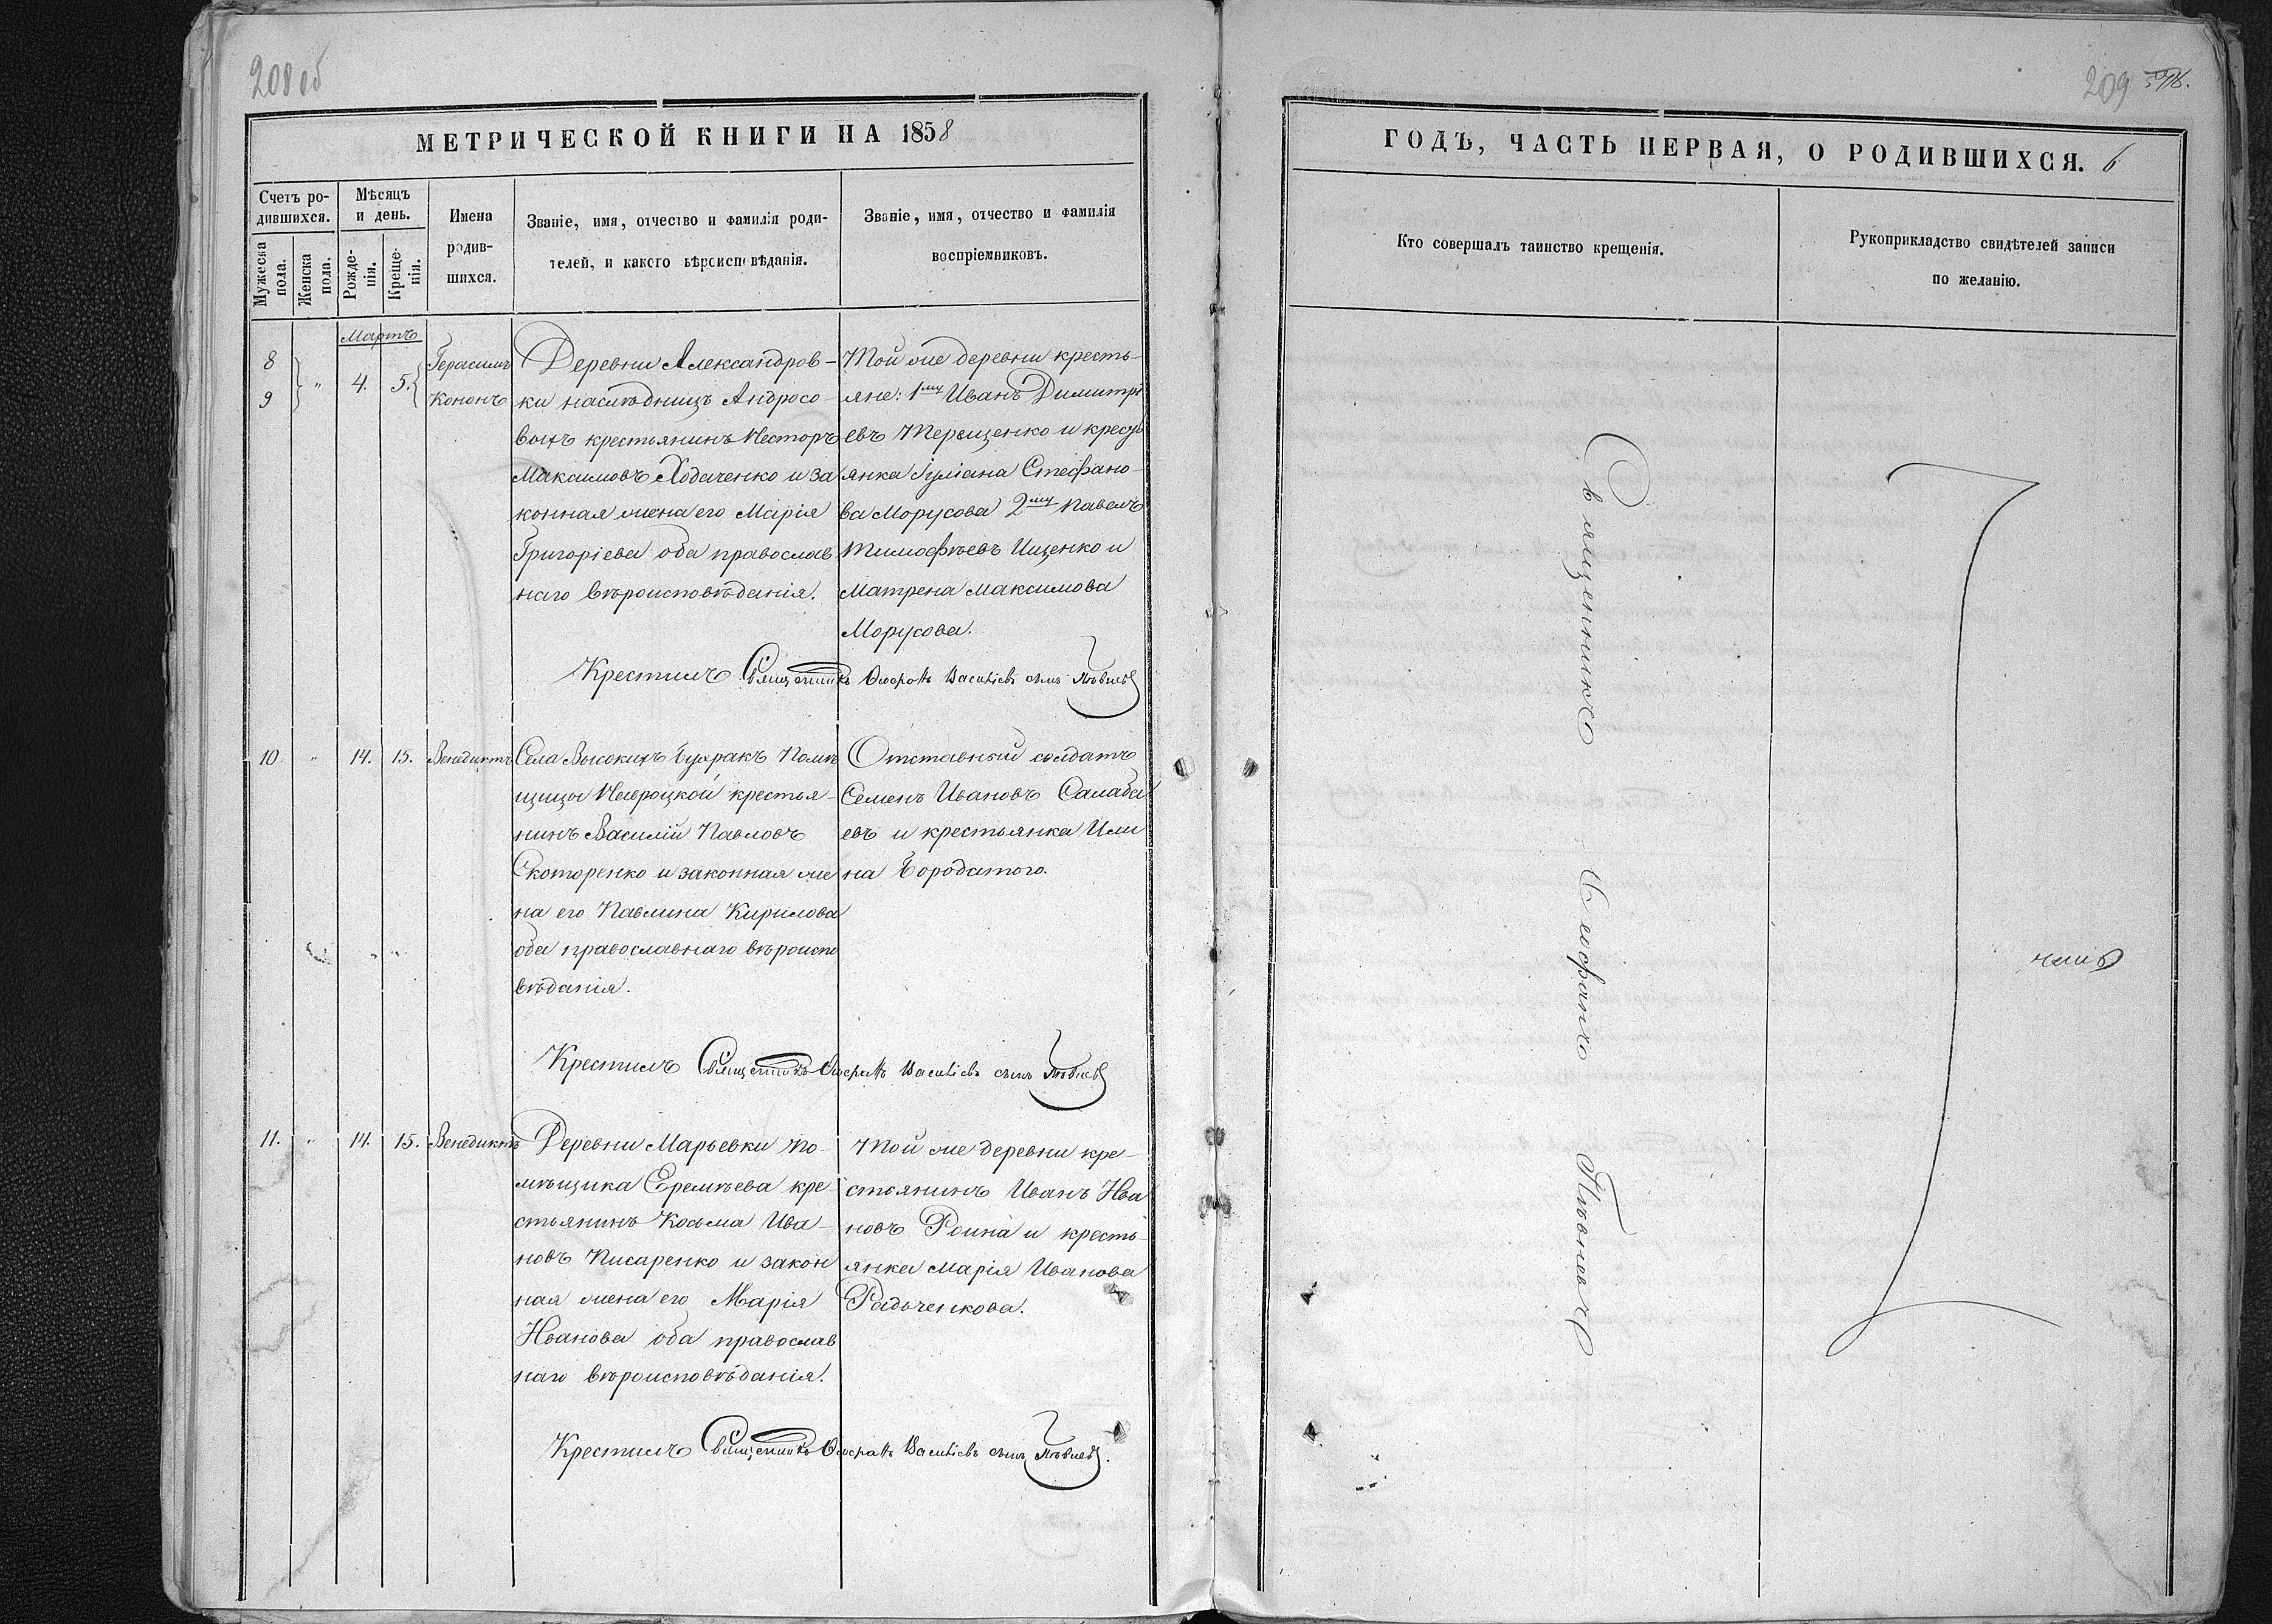 208 об
МЕТРИЧЕСКОЙ КНИГИ НА 1858
Счетъ ро-
дившихся.
Мужеска
пола.
Женска
пола.
Мѣсяцъ
и день.
Рожде-
нія.
Креще-
нія.
Имена
родив-
шихся.
Званіе, имя, отчество и фамилія роди-
телей, и какого вѣроисповѣданія.
Званіе, имя, отчество и фамилія
воспріемниковъ.
Мартъ
8
9
"
4.
5.
Герасимъ
Кононъ
Деревни Александров-
ки наслѣдницъ Андросо-
выхъ крестьянинъ Несторъ
Максимовъ Ходаченко и за
конная жена его Марія
Григоріева оба православ
наго вѣроисповѣданія.
Той же деревни кресть-
яне: 1му Иванъ Димитрі
евъ Терещенко и кресть
янка Іуліана Стефано-
ва Морусова 2му Павелъ
Тимофѣевъ Ищенко и
Матрена Максимова
Морусова.
Крестилъ Священникъ Васильевъ сынъ
10.
"
14.
15.
Венедиктъ
Села Высокихъ Буяракъ Помѣ
щицы крестья-
нинъ Василій Павловъ
Скоторенко и законная же
на его Павлина Кирилова
оба православнаго вѣроиспо
вѣданія.
Отставный солдатъ
Семенъ Ивановъ Салаба
евъ и крестьянка Или
на Бородатого.
Крестилъ Священникъ Васильевъ сынъ
11.
"
14.
15.
Венедиктъ
Деревни Марьевки по-
мѣщика Еремѣева кре
стьянинъ Косьма Ива-
новъ Писаренко и закон
ная жена его Марія
Иванова оба православ
наго вѣроисповѣданія.
Той же деревни кре-
стьянинъ Иванъ Ива
новъ Роина и кресть-
янка Марія Иванова
Радченкова.
Крестилъ Священникъ Васильевъ сынъ
209
ГОДЪ, ЧАСТЬ ПЕРВАЯ, О РОДИВШИХСЯ. 6
Кто совершалъ таинство крещенія.
Рукоприкладство свидѣтелей записи
по желанію.
Священникъ